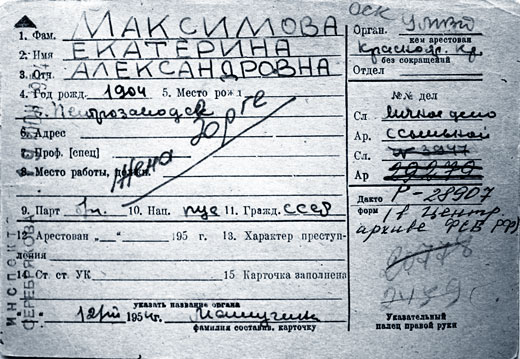 1. Фам. МАКСИМОВА
2. Имя ЕКАТЕРИНА
3. Отч. АЛЕКСАНДРОВНА
4. Год рожд. 1904 5. Место рожд
Петрозаводск
6. Адрес
7. Проф. [спец]
8. Место работы, должн.
Жена Зорге
9. Парт б/п. 10. Нац. рус 11. Гражд. СССР
12. Арестован „__“ 195 г. 13. Характер преступления
14. Ст. ст. УК 15 Карточка заполнена
указать название органа
12/VIII 1954г.
фамилия составв. карточку
ИНСПЕКТ
СЕРЕБРЯКОВА
ОСК
Орган. УМВД
кем арестован
Краснояр. Кр.
без сокращений
Отдел
№№ дел
Сл личное дело
Ар. ссыльной
Сл. 3977
Ар 29279
Дакто Р-28907
форм (в Центр.
архиве ФСБ РФ)
Указательный
палец правой руки